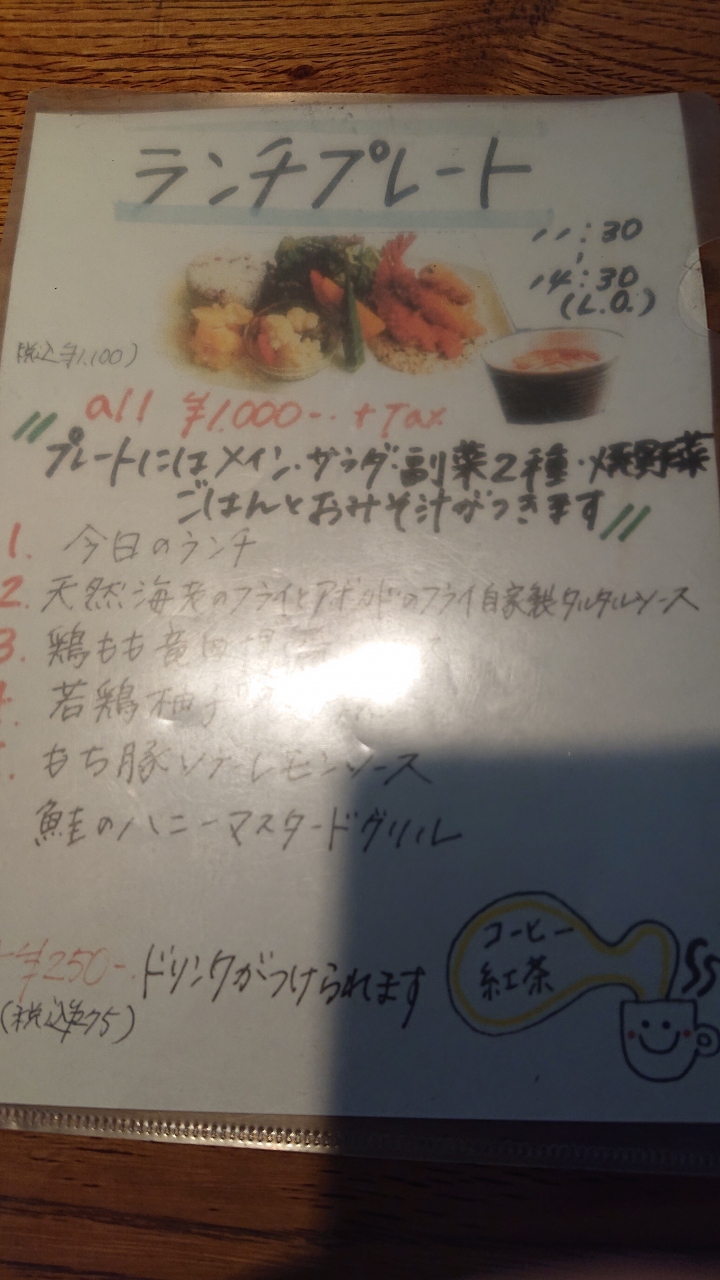 ランチプレート
11:30
-
14:30
(L.O.)
(税込¥1,100)
all ¥1,000-. + Tax
プレートにはメイン・サラダ・副菜2種・焼野菜
ごはんとおみそ汁がつきます
1. 今日のランチ
2. 天然海老のフライとアボカドのフライ自家製タルタルソース
3. 鶏もも竜田
若鶏柚子
もち豚ソテーレモンソース
鮭のハニーマスタードグリル
+¥250-. ドリンクがつけられます
(税込¥275)
コーヒー
紅茶